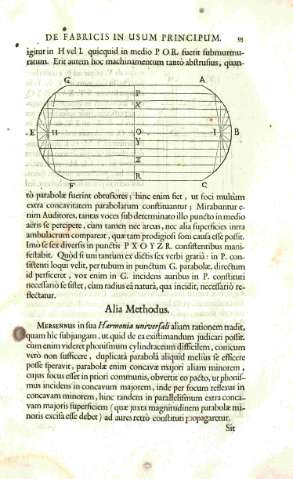 DE FABRICIS IN USUM PRINCIPUM. 95
igitur in H vel I. quicquid in medio P O R. fuerit submurmu-
ratum. Erit autem hoc machinamentum tantò abstrusius, quan-
G A
P
X
E H O I B
Y
Z
R
F C
tò parabolæ fuerint obtusiores; hinc enim fiet, ut foci multùm
extra concavitatem parabolarum constituantur; Mirabuntur e-
nim Auditores, tantas voces sub determinato illo puncto in medio
aëris se percipere, cum tamen nec arcus, nec alia superficies intra
ambulacrum compareat, quæ tam prodigiosi soni causa esse possit.
Imò se sex diversis in punctis P X O Y Z R. consistentibus mani-
festabit. Quòd si unus tantùm ex dictis sex verbi gratiâ: in P. con-
sistenti loqui velit, per tubum in punctum G. parabolæ, directum
id perficeret, vox enim in G. incidens auribus in P. constituti
necessariò se sistet, cum radius eâ naturâ, qua incidit, necessariò re-
flectatur.
Alia Methodus.
MERSENNUS in sua Harmonia universali aliam rationem tradit,
quam hîc subjungam, ut quid de ea existimandum judicari possit.
cum enim videret phonismum cylindraceum difficilem, conicum
verò non sufficere, duplicatâ parabolâ aliquid melius se efficere
posse speravit, parabolæ enim concavæ majori aliam minorem,
cujus focus esset in priori communis, obvertit eo pacto, ut phonis-
mus incidens in concavum majorem, inde per focum reflexus in
concavam minorem, hinc tandem in parallelismum extra conca-
vam majoris superficiem (quæ juxta magnitudinem parabolæ mi-
noris excisa esse debet) ad aures retrò constituti propagaretur.
Sit